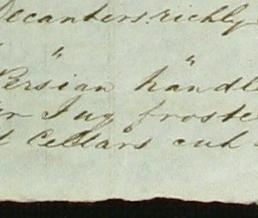 Decanters richly
" "
Persian handle
Jug froste
Cellars cut